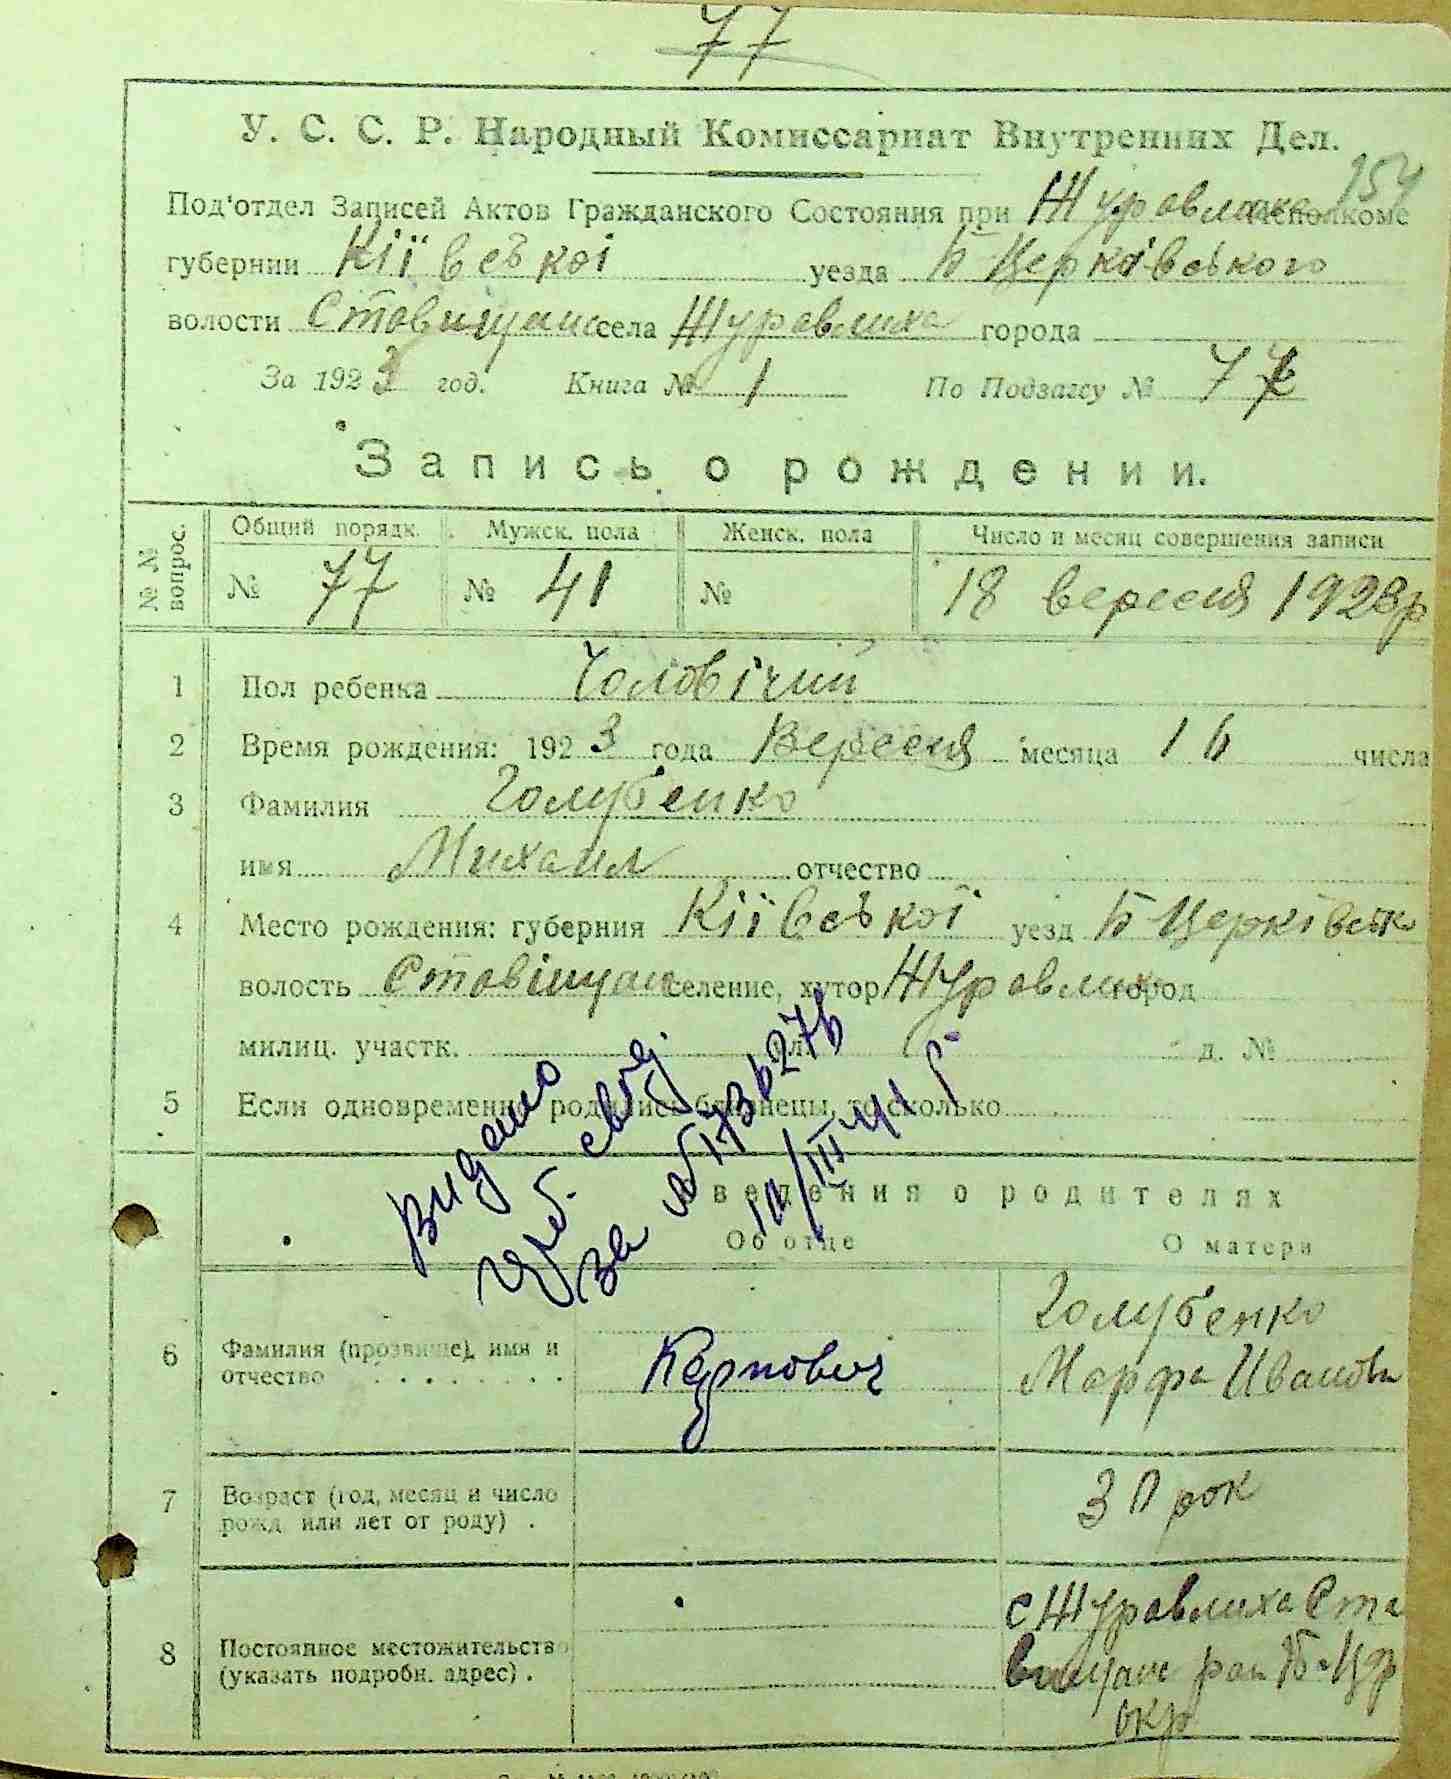 77
У. С. С. Р. Народный Комиссариат Внутренних Дел.
154
Под'отдел Записей Актов Гражданского Состояния при Журавлиха исполкоме
губернии Кіївськоі уезда Б Церківського
волости Ставищан села Журавлиха города
За 1923 год. Книга № 1 По Подзагсу № 77
Запись о рождении.
№ № вопрос. Общий порядк. Мужск. пола Женск. пола Число и месяц совершения записи
№ 77 № 41 № 18 вересня 1923р
1 Пол ребенка Чоловічий
2 Время рождения: 1923 года Вересня месяца 16 числа
3 Фамилия Голубенко
имя Михаил отчество
4 Место рождения: губерния Кіївськоі уезд Б Церківськ
волость Ставіщан селение, хутор Журавлиха город
милиц. участк. ул. д. №
5 Если одновременно родились близнецы, то сколько
Видано
свід.
за № 173627б
11/III 41 р
Сведения о родителях
Об отце О матери
6 Фамилия (прозвище), имя и отчество Карпович Голубенко
Марфа Иванов
7 Возраст (год, месяц и число рожд или лет от роду) . 30 рок
8 Постоянное местожительство (указать подробн. адрес) . с Журавлиха Ста
вищан рай Б-Цр
окр